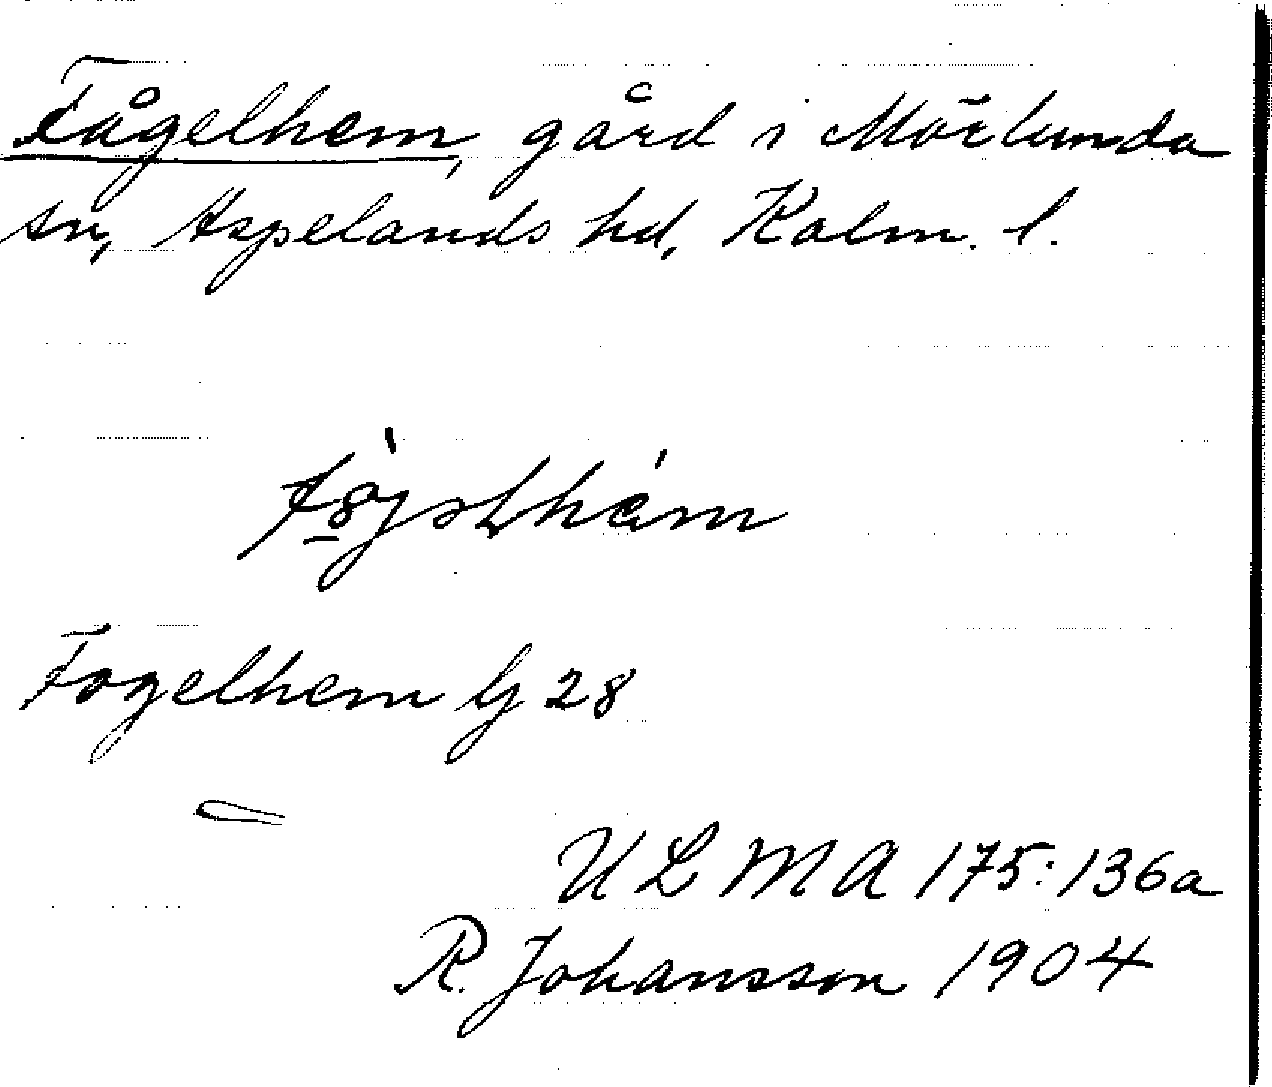 Fågelhem, gård i Mörlunda
sn, Aspelands hd, Kalm. l.
Fogelhem G 28
ULMA 175:136a
R. Johansson 1904